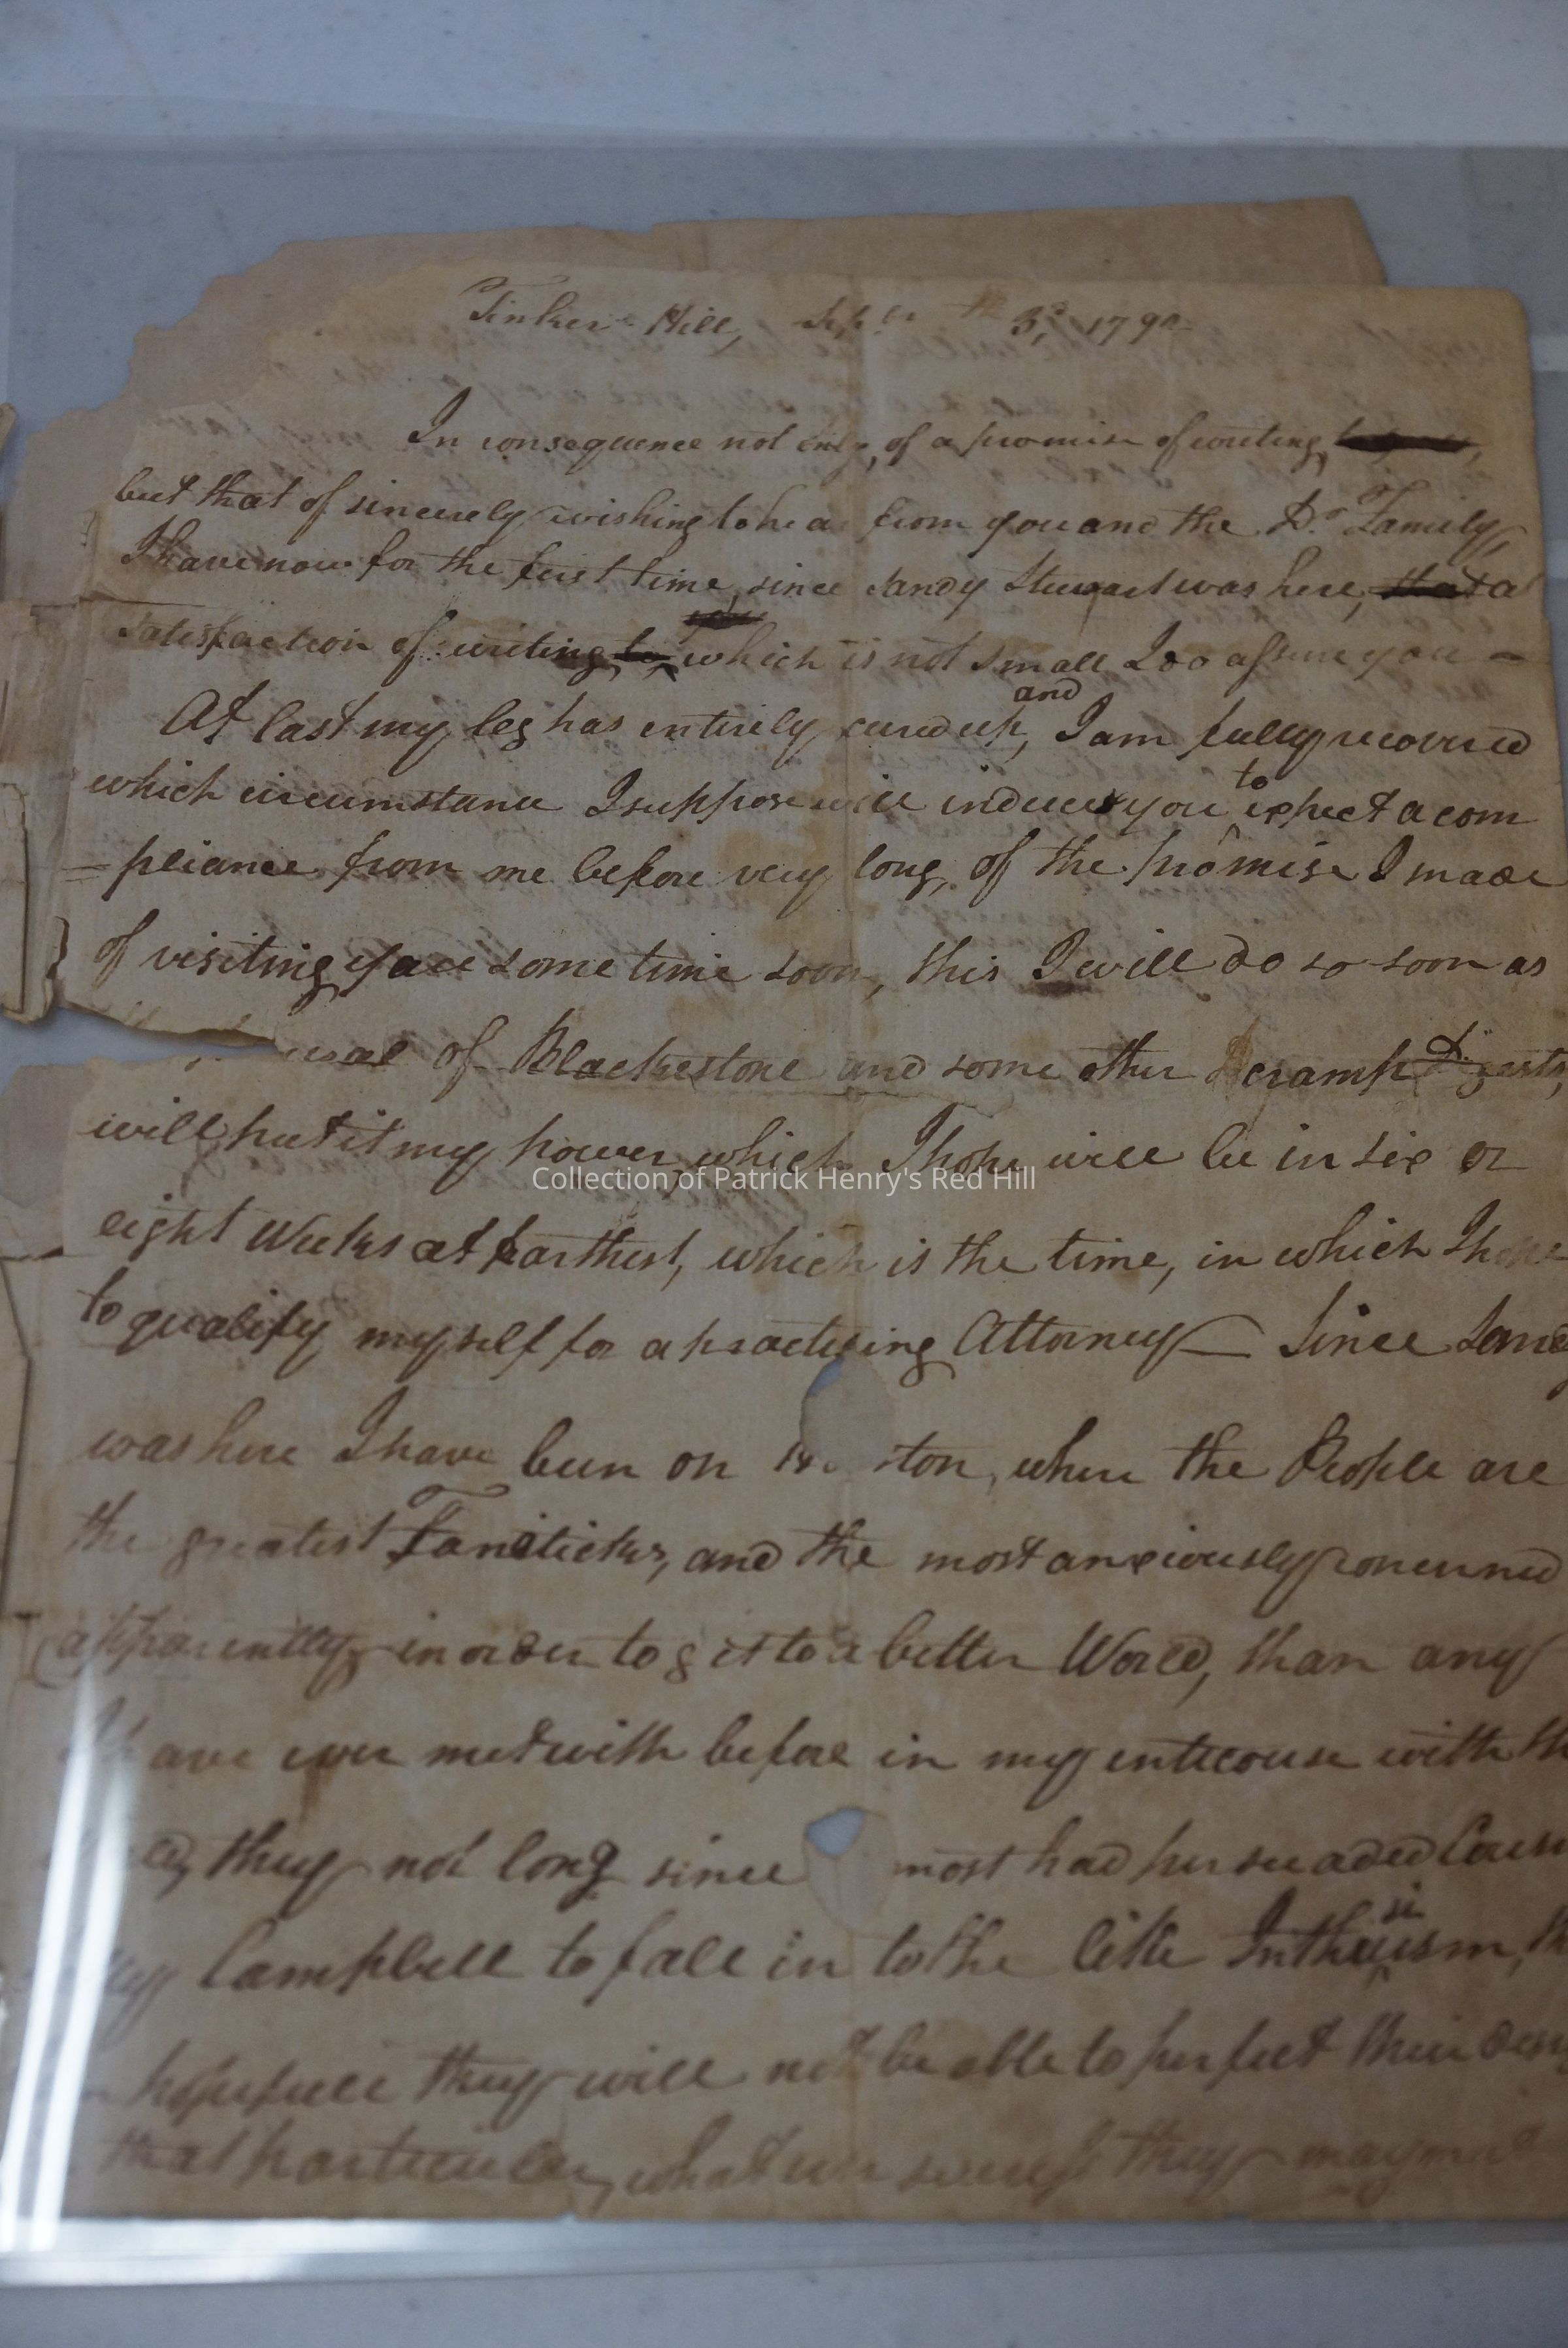 Tinker Hill, Sepr. 3d, 179
In consequence not only, of a promise of writing,
but that of sincerely wishing to hear from you and the Dr. Family,
I have now for the first time, since Sandy Stewart was here, a
satisfaction of writing, which is not small I do assure you —
At last my leg has entirely cured up, and I am fully recovered
which circumstance I suppose will induce you to expect a com
= pliance from me before very long, of the promise I made
of visiting you some time soon, this I will do so soon as
usal of Blackestone and some other
will put it my power, which I hope will be in six or
eight Weeks at farthest, which is the time, in which I hope
to qualify myself for a practising Attorney — Since
was here I have been on ston, where the People are
the greatest Faniticks, and the most anxiously concerned
(apparently) in order to get to a better World, than any
I have ever met with before in my enticouse with
they not long since most had persuaded
Campbell to fall in to the like Inthusism,
hopefull they will not be able to perfect their
that particular, whatever success they may
Collection of Patrick Henry's Red Hill